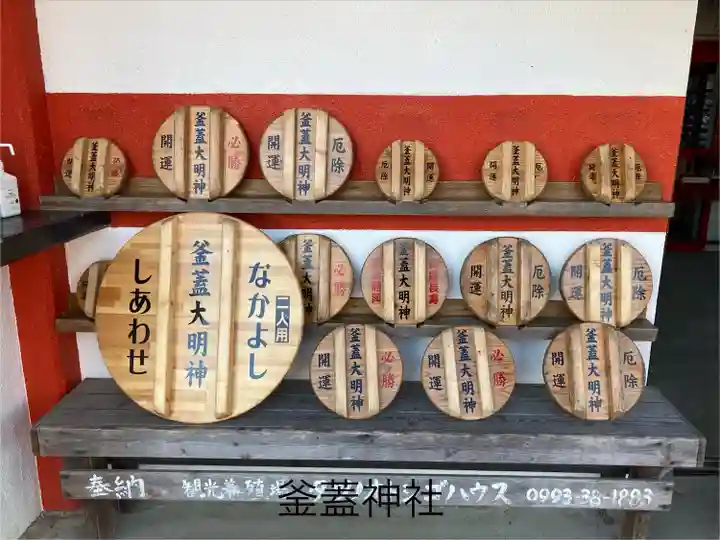 釜蓋大明神
必勝
開運
釜蓋大明神
必勝
開運
釜蓋大明神
厄除
開運
釜蓋大明神
開運
厄除
釜蓋大明神
開運
釜蓋大明神
厄除
開運
釜蓋大明神
なかよし
二人用
釜蓋大明神
しあわせ
必勝
釜蓋大明神
釜蓋大明神
厄除
釜蓋大明神
開運
厄除
釜蓋大明神
開運
必勝
釜蓋大明神
開運
必勝
釜蓋大明神
開運
厄除
釜蓋大明神
開運
奉納 観光養殖 ハウス 0993-38-1883
釜蓋神社